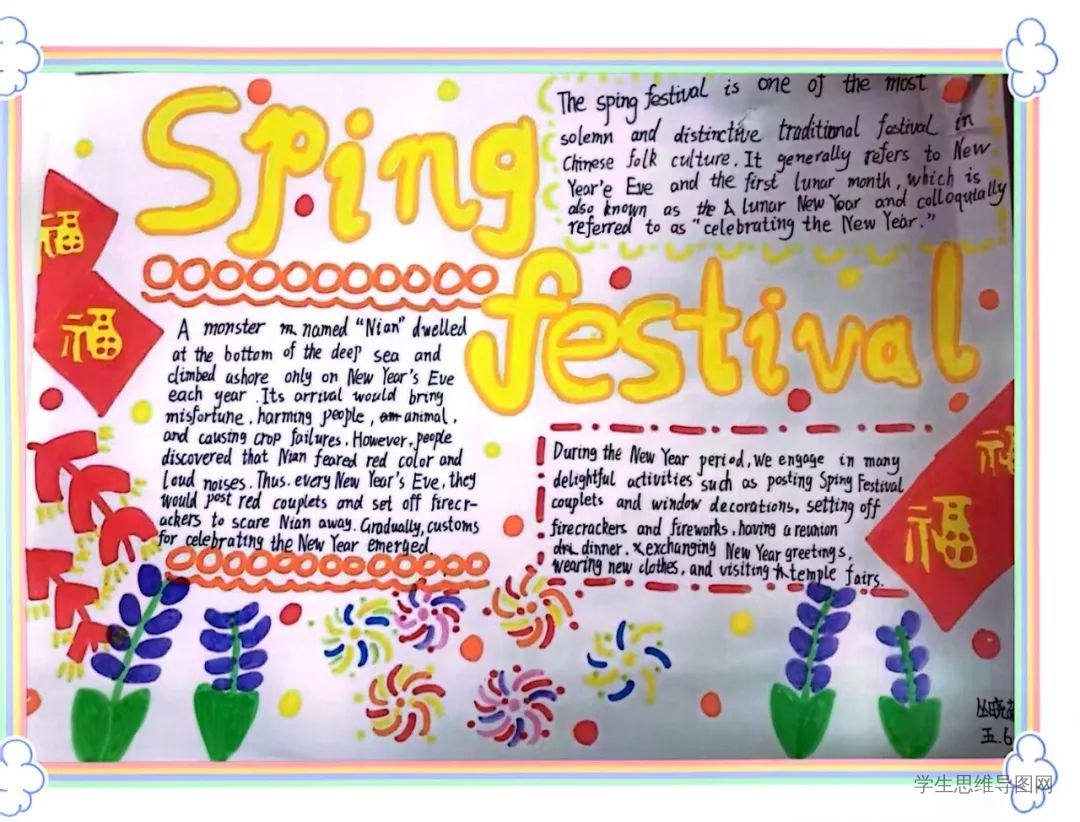 Sping
festival
The sping festival is one of the most
solemn and distinctive traditional festival in
Chinese folk culture. It generally refers to New
Year'e Eve and the first lunar month, which is
also known as the lunar New Year and colloquially
referred to as "celebrating the New Year."
A monster named "Nian" dwelled
at the bottom of the deep sea and
climbed ashore only on New Year's Eve
each year. Its arrival would bring
misfortune, harming people, animal,
and causing crop failures. However, people
discovered that Nian feared red color and
Loud noises. Thus. every New Year's Eve, they
would post red couplets and set off firecr-
ackers to scare Nian away. Gradually, customs
for celebrating the New Year emerged
During the New Year period, we engage in many
delightful activities such as posting Sping Festival
couplets and window decorations, setting off
firecrackers and fireworks, having a reunion
dinner, exchanging New Year greetings,
wearing new clothes, and visiting temple fairs.
福
福
福
福
丛晓
五.6
学生思维导图网